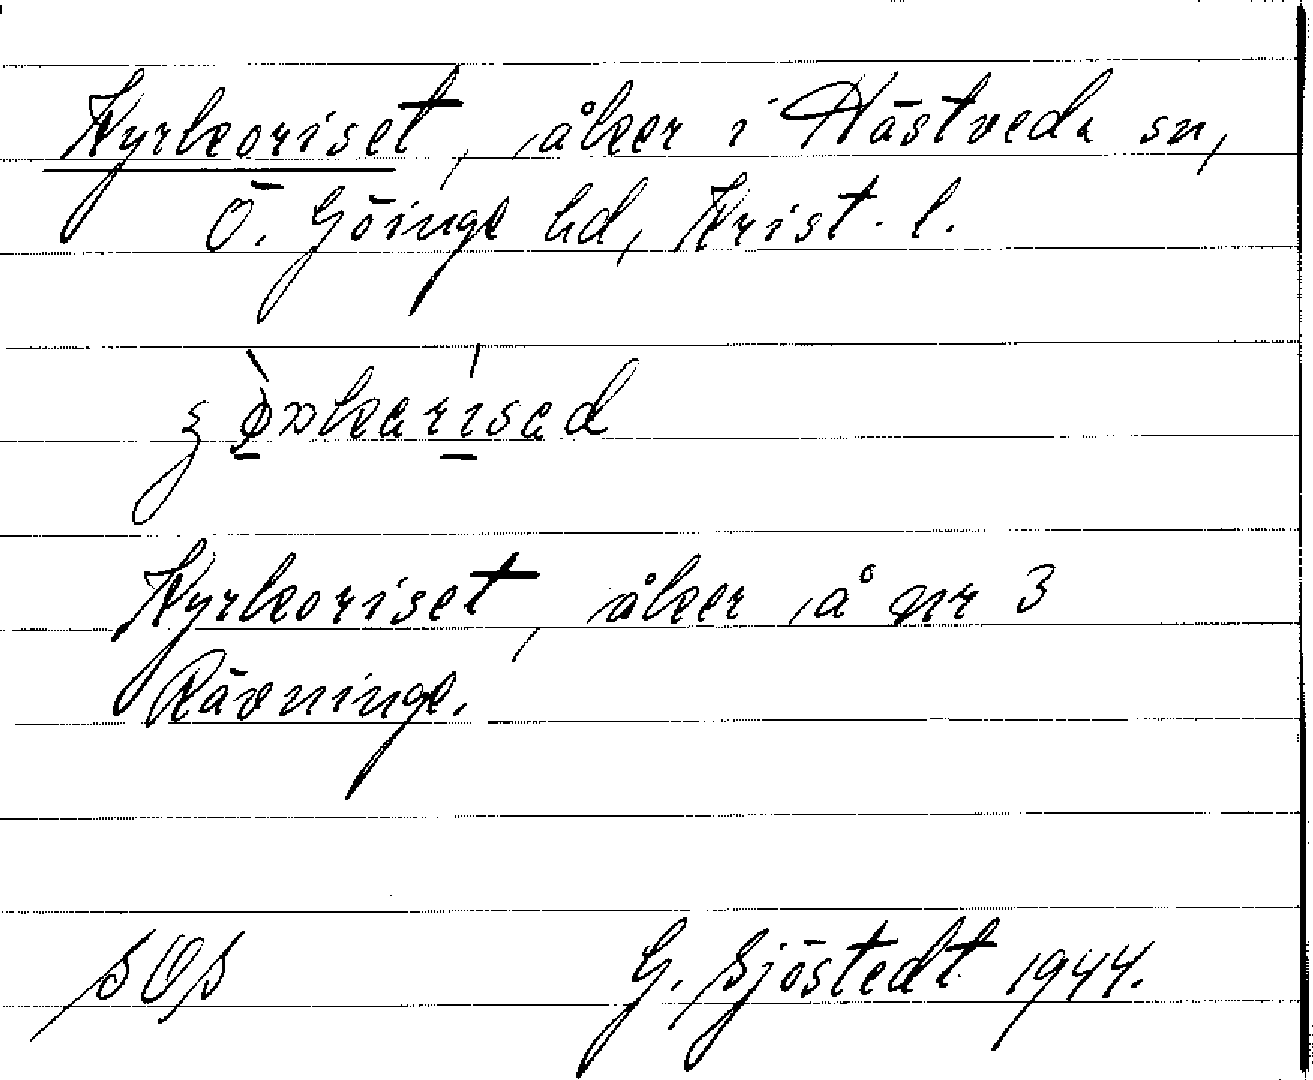 Kyrkoriset, åker i Hästveda sn,
Ö. Göinge hd, Krist. l.
Kyrkoriset, åker å nr 3
Rävninge.
G. Sjöstedt 1944.